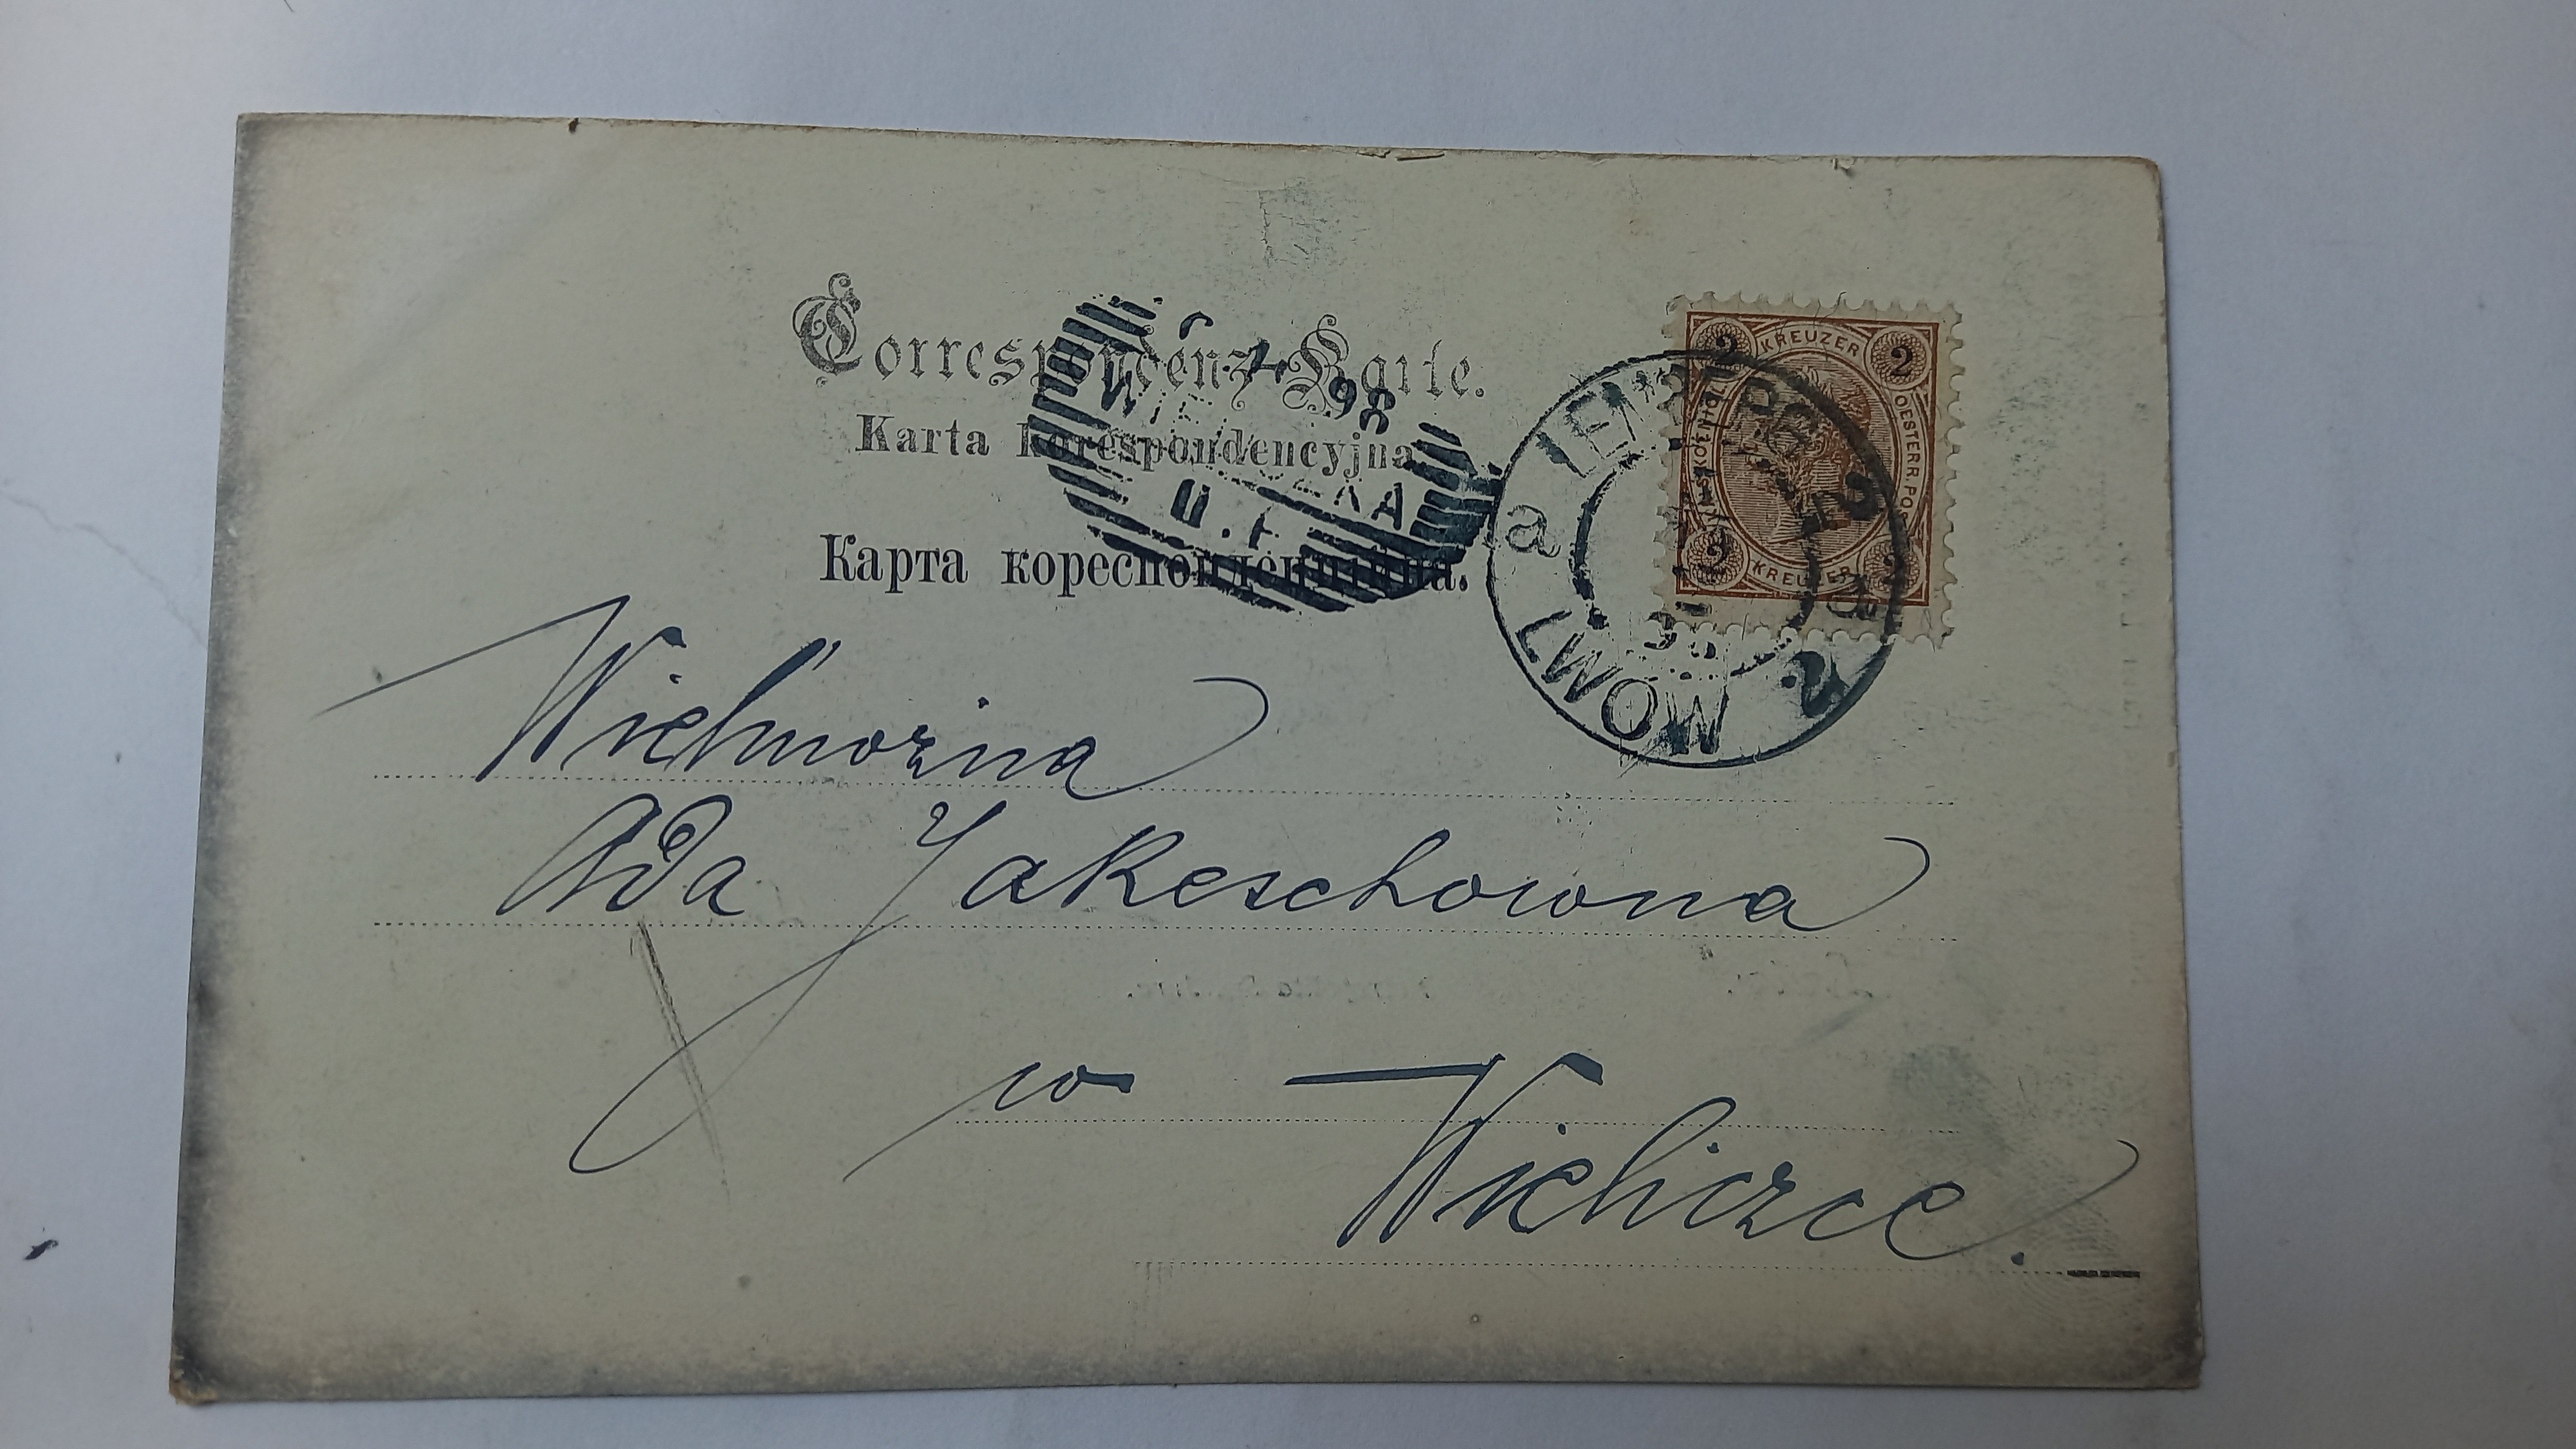 Correspondenz-Karte.
Karta korespondencyjna
Карта кореспонденцийна.
KREUZER
2 2
OESTERR. POST
2 2
KREUZER
98
WIELICZKA
LEMBERG 2
a
LWÓW 2
Wielmożna
Ada Jakeschowna
w Wieliczce.